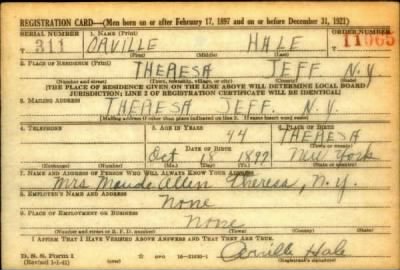 REGISTRATION CARD—(Men born on or after February 17, 1897 and on or before December 31, 1921)
SERIAL NUMBER 1. NAME (Print) ORDER NUMBER
T 311 ORVILLE HALE 11065
(First) (Middle) (Last)
2. PLACE OF RESIDENCE (Print)
THERESA JEFF N.Y.
(Number and street) (Town, township, village, or city) (County) (State)
[THE PLACE OF RESIDENCE GIVEN ON THE LINE ABOVE WILL DETERMINE LOCAL BOARD
JURISDICTION; LINE 2 OF REGISTRATION CERTIFICATE WILL BE IDENTICAL]
3. MAILING ADDRESS
THERESA JEFF. N.Y.
[Mailing address if other than place indicated on line 2. If same insert word same]
4. TELEPHONE 5. AGE IN YEARS 6. PLACE OF BIRTH
44 THERESA
DATE OF BIRTH (Town or county)
Oct 18 1897 New York
(Exchange) (Number) (Mo.) (Day) (Yr.) (State or country)
7. NAME AND ADDRESS OF PERSON WHO WILL ALWAYS KNOW YOUR ADDRESS
Mrs Maude Allen Theresa, N.Y.
8. EMPLOYER'S NAME AND ADDRESS
None
9. PLACE OF EMPLOYMENT OR BUSINESS
None
(Number and street or R. F. D. number) (Town) (County) (State)
I AFFIRM THAT I HAVE VERIFIED ABOVE ANSWERS AND THAT THEY ARE TRUE.
D. S. S. Form 1 GPO 16—21630-1 Orville Hale
(Revised 1-1-42) (Registrant's signature)